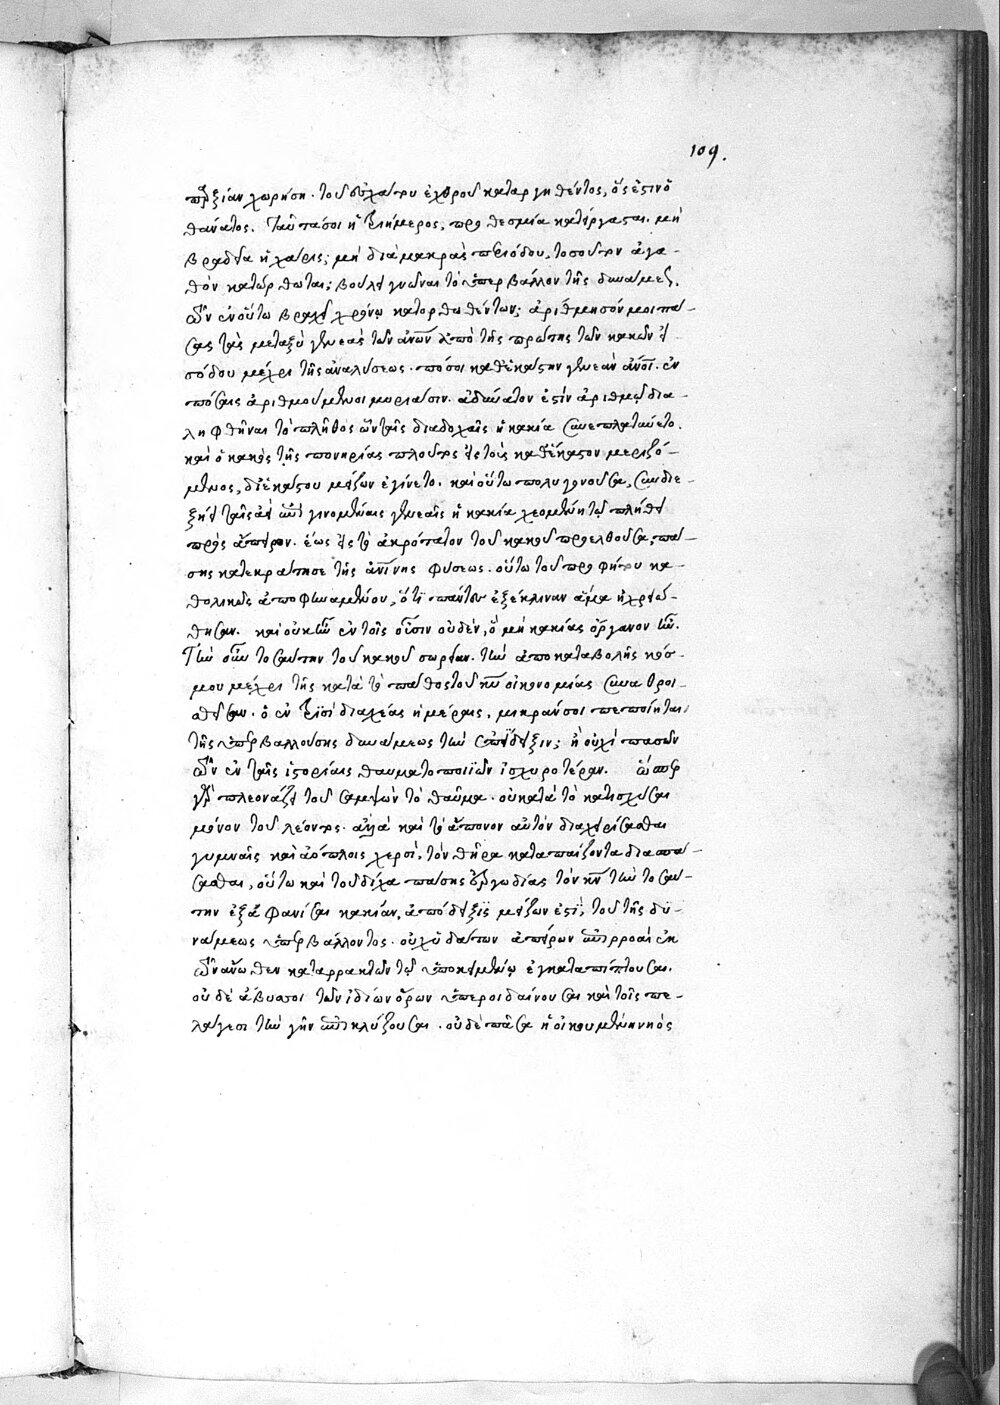 109.
πραξίαν χωρήση. τοῦ ἐσχάτου ἐχθροῦ καταργηθέντος, ὅς ἐστιν ὁ
θάνατος. Ταῦτά σοι ἡ τριήμερος προθεσμία κατείργασται. μὴ
βραδεῖα ἡ χάρις; μὴ διὰ μακρᾶς περιόδου τοσοῦτον ἀγα-
θὸν κατώρθωται; βούλει γνῶναι τὸ ὑπερβάλλον τῆς δυνάμεως
τῶν ἐν οὕτω βραχεῖ χρόνω κατορθωθέντων; ἀρίθμησόν μοι πά-
σας τὰς μεταξὺ γενεὰς τῶν ἀνων ἀπὸ τῆς πρώτης τῶν κακῶν εἰ-
σόδου μέχρι τῆς ἀναλύσεως. πόσοι καθ' ἑκάστην γενεὰν ἀνοι. ἐν
πόσαις ἀριθμούμενοι μυριάσιν. ἀδύνατον ἐστὶν ἀριθμῷ δια-
ληφθῆναι τὸ πλῆθος ὧν ταῖς διαδοχαῖς ἡ κακία συνεπλατύνετο.
καὶ ὁ κακὸς τῆς πονηρίας πλοῦτος εἰς τοὺς καθ' ἕκαστον μεριζό-
μενος, δι' ἑκάστου μείζων ἐγίνετο. καὶ οὕτω πολυγονοῦσα, συνδιε-
ξήει ταῖς ἀεὶ ἐπιγινομέναις γενεαῖς ἡ κακία χεομένη τῷ πλήθει
πρὸς ἄπειρον. ἕως εἰς τὸ ἀκρότατον τοῦ κακοῦ προελθοῦσα, πά-
σης κατεκράτησε τῆς ἀνίνης φύσεως. οὕτω τοῦ προφήτου κα-
θολικῶς ἀποφηναμένου, ὅτι πάντες ἐξέκλιναν ἅμα ἠχρειώ-
θησαν. καὶ οὐκ ἦν ἐν τοῖς οὖσιν οὐδὲν, ὃ μὴ κακίας ὄργανον ἦν.
Τὴν οὖν τοσαύτην τοῦ κακοῦ σωρείαν. τὴν ἀπὸ καταβολῆς κόσ-
μου μέχρι τῆς κατὰ τὸ πάθος τοῦ κυ οἰκονομίας συναθροι-
σθεῖσαν. ὁ ἐν τρισὶ διαχέας ἡμέραις, μικράν σοι πεποίηται
τῆς ὑπερβαλλούσης δυνάμεως τὴν ἀπόδειξιν; ἢ οὐχὶ πασῶν
τῶν ἐν ταῖς ἱστορίαις θαυματοποιϊῶν ἰσχυροτέραν. ὥσπερ
γὰρ πλεονάζει τοῦ σαμψὼν τὸ θαῦμα. οὐ κατὰ τὸ κατισχῦσαι
μόνον τοῦ λέοντος. ἀλλὰ καὶ τὸ ἄπονον αὐτὸν διαχειρίσασθαι
γυμναῖς καὶ ἀόπλοις χερσὶ, τὸν θῆρα καταπαίζοντα διασπά-
σασθαι, οὕτω καὶ τοῦ δίχα πάσης πραγματείας τὸν κν τὴν τοσαύ-
την ἐξαφανίσαι κακίαν, ἀπόδειξις μείζων ἐστὶ, τοῦ τῆς δυ-
νάμεως ὑπερβάλλοντος. οὐχ ὑδάτων ἀπείρων ἐπιρροαὶ ἐκ
τῶν ἄνωθεν καταρρακτῶν τῷ ὑποκειμένῳ ἐγκαταπίπτουσαι.
οὐδὲ ἄβυσσοι τῶν ἰδίων ὅρων ὑπεροιδαίνουσαι καὶ τοῖς πε-
λάγεσι τὴν γῆν ἐπικλύζουσαι. οὐδὲ πᾶσα ἡ οἰκουμένη νηὸς